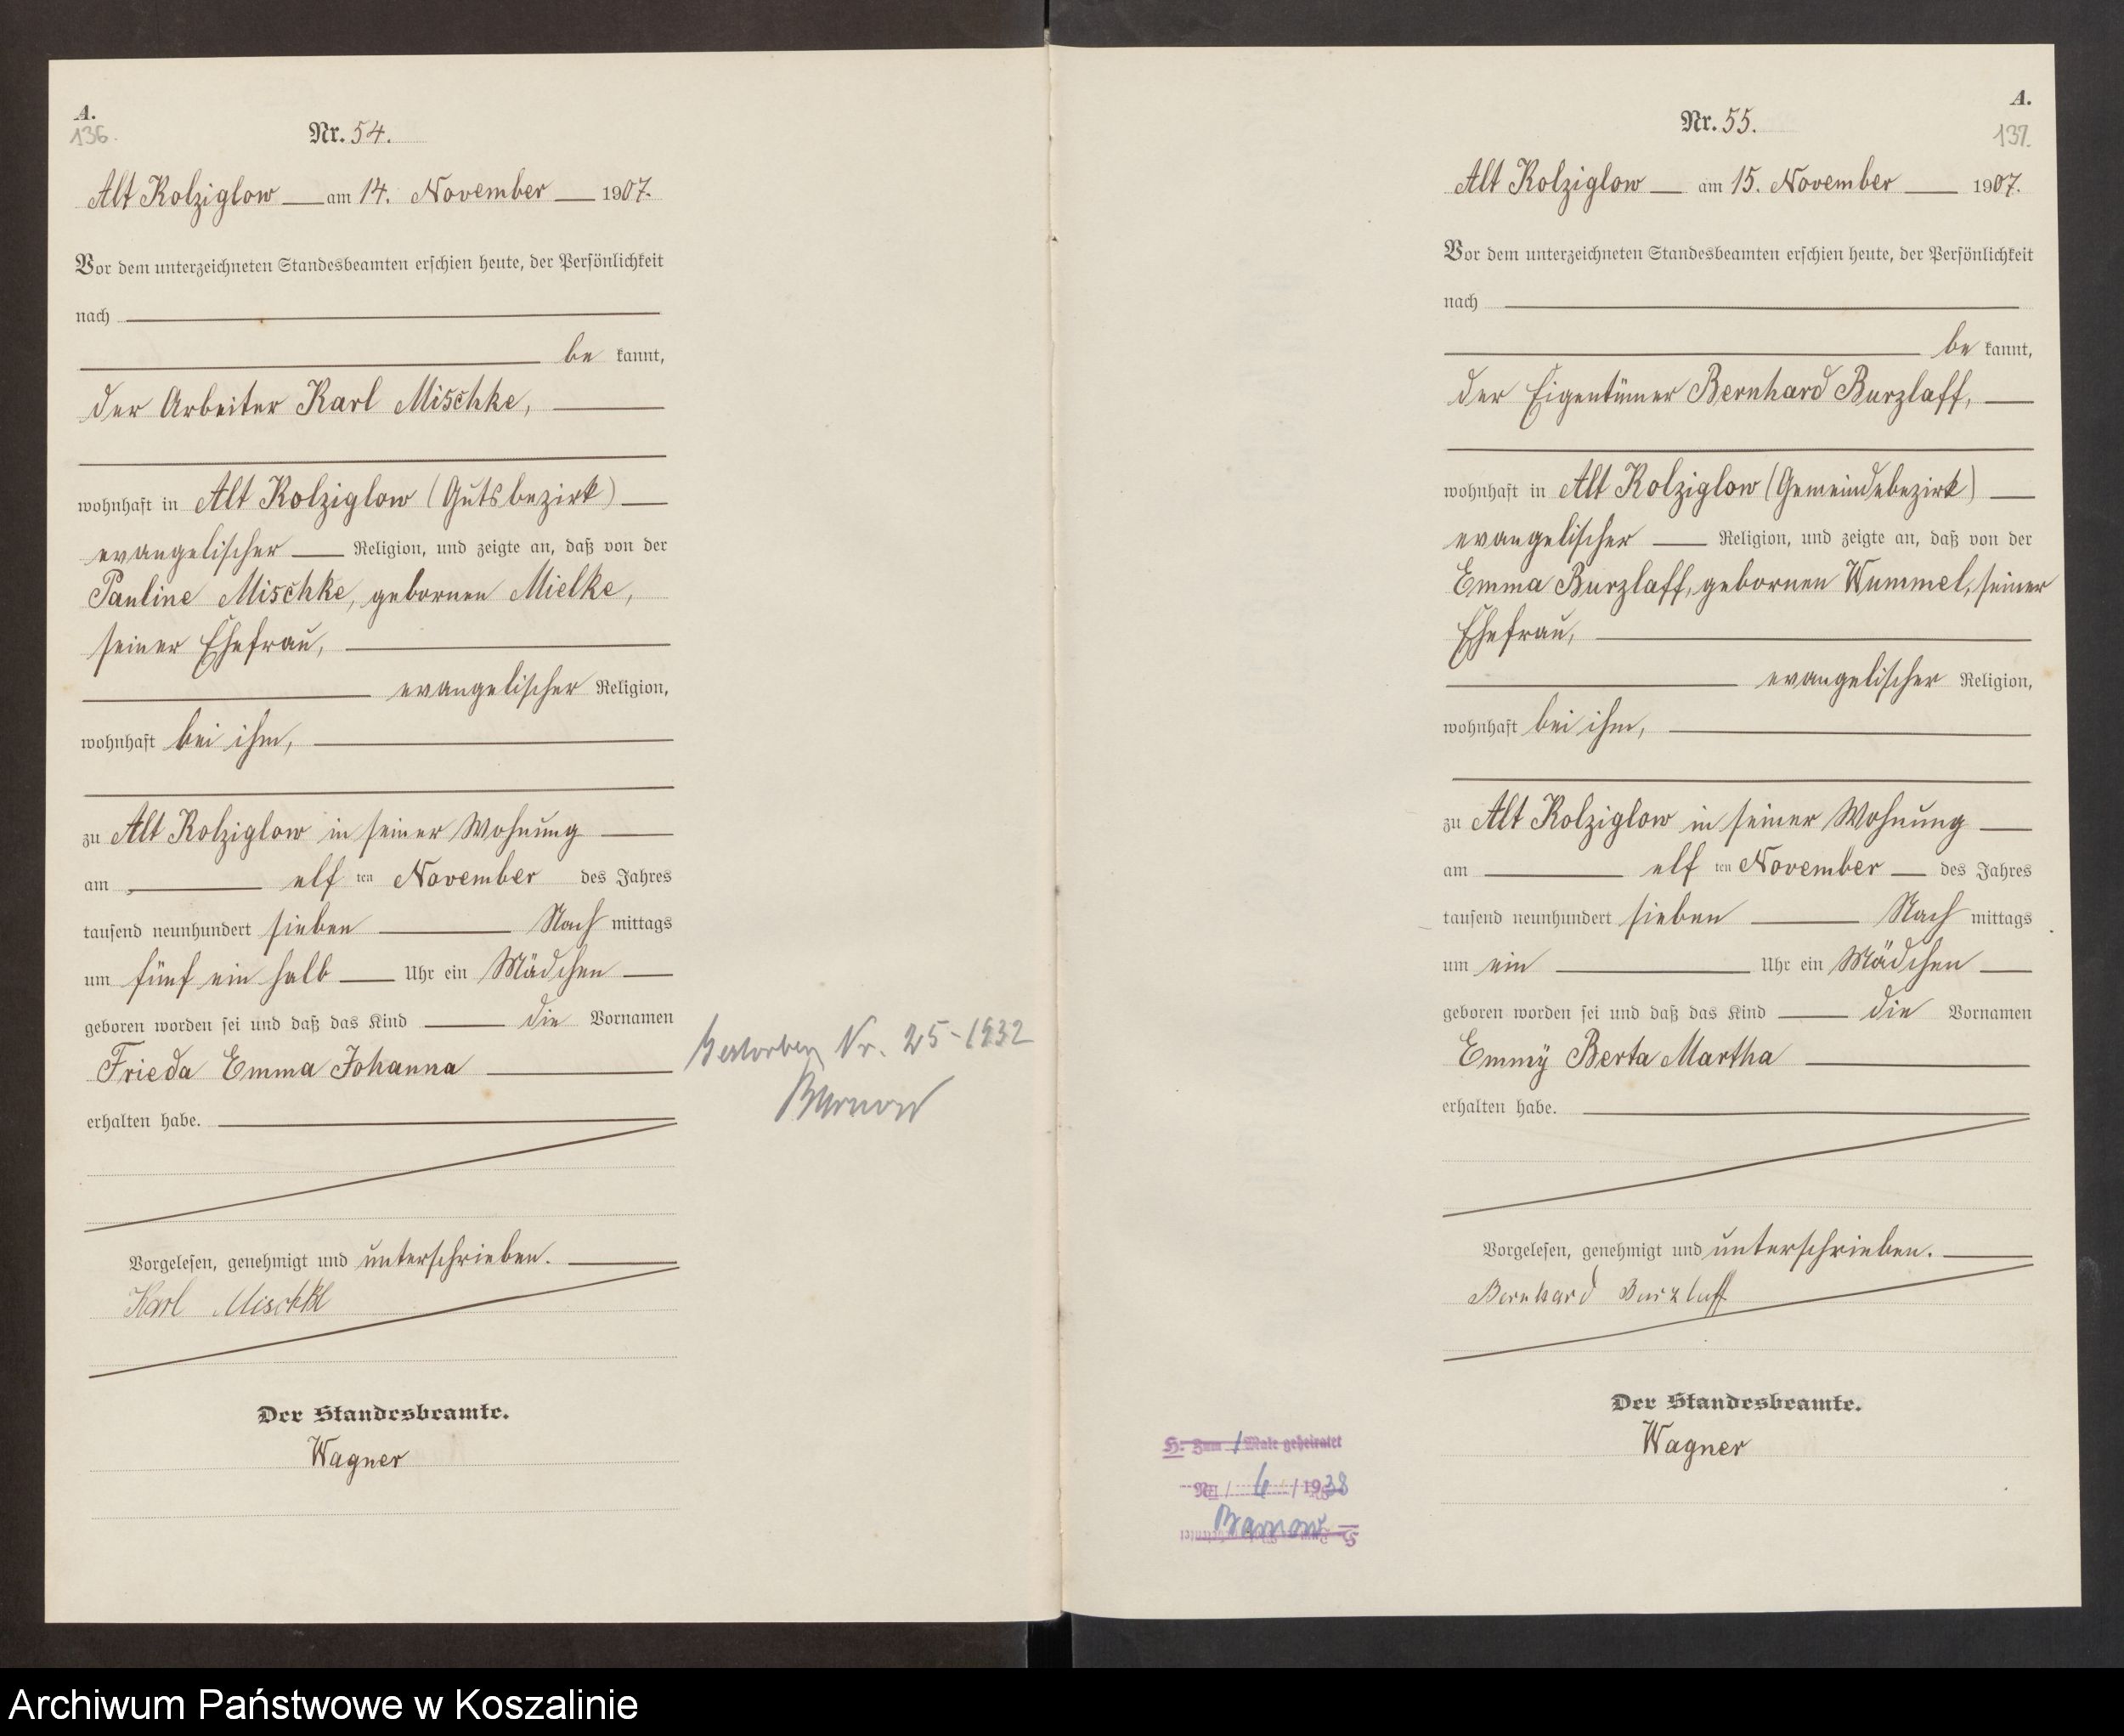 A.
136.
Nr. 54.
Alt Kolziglow am 14. November 1907.
Vor dem unterzeichneten Standesbeamten erschien heute, der Persönlichkeit
nach
be kannt,
der Arbeiter Karl Mischke,
wohnhaft in Alt Kolziglow (Gutsbezirk)
evangelischer Religion, und zeigte an, daß von der
Pauline Mischke, gebornen Mielke,
seiner Ehefrau,
evangelischer Religion,
wohnhaft bei ihm,
zu Alt Kolziglow in seiner Wohnung
am elf ten November des Jahres
tausend neunhundert sieben Nach mittags
um fünf ein halb Uhr ein Mädchen
geboren worden sei und daß das Kind die Vornamen
Frieda Emma Johanna
erhalten habe.
Vorgelesen, genehmigt und unterschrieben.
Karl Mischke
Der Standesbeamte.
Wagner
Gestorben Nr. 25-1932
A.
137.
Nr. 55.
Alt Kolziglow am 15. November 1907.
Vor dem unterzeichneten Standesbeamten erschien heute, der Persönlichkeit
nach
be kannt,
der Eigentümer Bernhard Burzlaff,
wohnhaft in Alt Kolziglow (Gemeindebezirk)
evangelischer Religion, und zeigte an, daß von der
Emma Burzlaff, gebornen Wummel, seiner
Ehefrau,
evangelischer Religion,
wohnhaft bei ihm,
zu Alt Kolziglow in seiner Wohnung
am elf ten November des Jahres
tausend neunhundert sieben Nach mittags
um ein Uhr ein Mädchen
geboren worden sei und daß das Kind die Vornamen
Emmÿ Berta Martha
erhalten habe.
Vorgelesen, genehmigt und unterschrieben.
Bernhard Burzlaff
Der Standesbeamte.
Wagner
H. Zum 1 Male geheiratet
Nr. / 6 / 1938
Archiwum Państwowe w Koszalinie